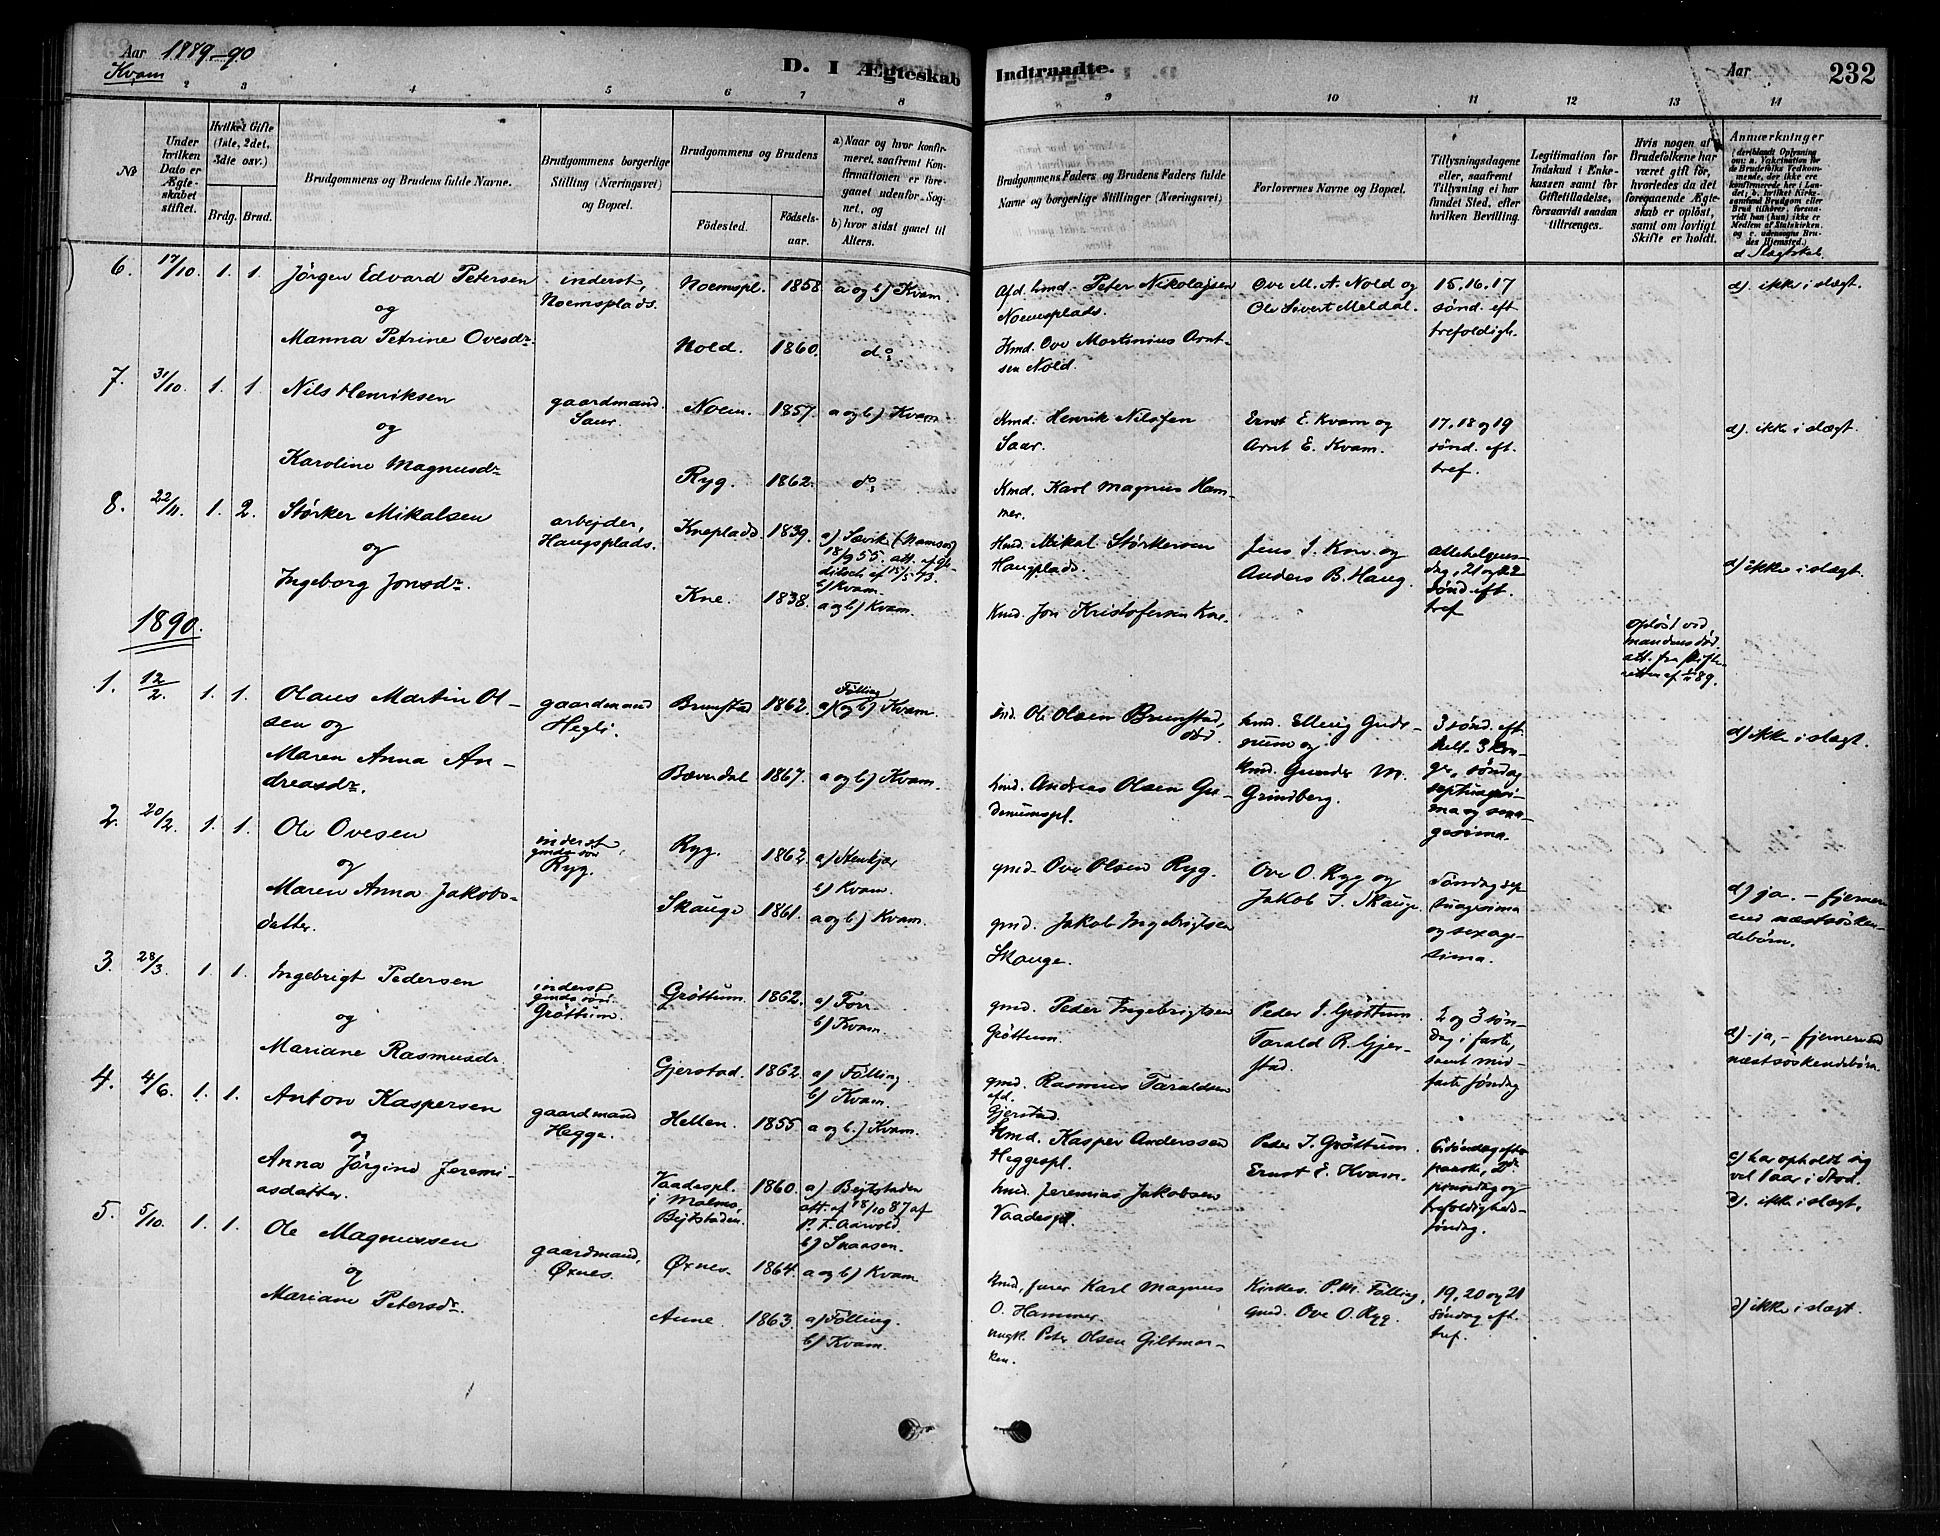 Aar 1889-90
Kvam
D. I Ægteskab Indtraadte.
Aar 232
2 3 4 5 6 7 8 9 10 11 12 13 14
No
Under hvilken Dato er Ægteskabet stiftet.
Hvilket Gifte (1ste, 2det, 3die osv.)
Brdg. Brud.
Brudgommens og Brudens fulde Navne.
Brudgommens borgerlige Stilling (Næringsvei) og Bopæl.
Brudgommens og Brudens
Fødested. Fødselsaar.
a) Naar og hvor konfirmeret, saafremt Konfirmationen er foregaaet udenfor Sognet, og
b) hvor sidst gaaet til Alters.
Brudgommens Faders og Brudens Faders fulde Navne og borgerlige Stillinger (Næringsvei)
Forlovernes Navne og Bopæl.
Tillysningsdagene eller, saafremt Tillysning ei har fundet Sted, efter hvilken Bevilling.
Legitimation for Indskud i Enkekassen samt for Giftetilladelse, forsaavidt saadan tiltrænges.
Hvis nogen af Brudefolkene har været gift før, hvorledes da det foregaaende Ægteskab er opløst, samt om lovligt Skifte er holdt.
Anmærkninger
d Slægtskab.
6. 17/10. 1. 1. Jörgen Edvard Petersen
og
Manna Petrine Ovesdr.
inderst, Noemsplads.
Noemspl. 1858 a og b) Kvam
Nold. 1860. do
Afd. hmd. Peter Nikolajsen
Noemsplads.
Kmd. Ove Martinius Arntsen Nold.
Ove M. A. Nold og
Ole Sivert Meldal.
15, 16, 17
sönd. eft
trefoldigh.
d). ikke i slægt.
7. 31/10. 1. 1 Nils Henriksen
og
Karoline Magnusdr
gaardmand Saur.
Noem. 1857. a og b) Kvam
Ryg. 1862. do
Kmd. Henrik Nilssen
Saar.
Kmd. Karl Magnus Hammer.
Ernst E. Kvam og
Arnt E. Kvam.
17, 18 og 19
sönd. eft.
tref.
d). ikke i slægt.
8. 22/11. 1. 2. Størker Mikalsen
og
Ingeborg Jonsdr.
arbejder, Haugsplads.
Kneplads 1839.
b) Kvam.
Kne. 1838. a og b) Kvam.
Hmd. Mikal Størkersen
Haugplads.
Kmd. Jon Kristofersen Kne.
Jens J. Kne og
Anders B. Haug.
Allehelgensdag, 21 og 22
sönd. eft.
tref
opløst ved
mandens død.
d) ikke i slægt.
1890.
1. 12/2. 1. 1. Olaus Martin Olsen og
Maren Anna Andreasdr.
gaardmand Hegli.
Brunstad 1862. Fölling a) (og b) Kvam.
Bæverdal 1867. a og b) Kvam.
Ole Olsen Brunstad, død.
hmd. Andreas Olsen Gudenumspl.
hmd. Gunder M.
Grindberg.
3 sönd. eft.
hell. 3 konger, söndag
septuagesima og sexagesima.
d) ikke i slægt.
2. 20/2. 1. 1. Ole Ovesen
og
Maren Anna Jakobsdatter.
inderst, gmds sön Ryg.
Ryg. 1862. a) Stenkjær
b) Kvam.
Skauge 1861. a og b) Kvam.
gmd. Ove Olsen Ryg.
gmd. Jakob Ingebrigtsen
Skauge.
Ove O. Ryg og
Jakob I. Skauge.
Söndag septuagesima
og sexagesima.
d) ja. - fjernere
end næstsöskendebörn.
3. 28/3. 1. 1. Ingebrigt Pedersen
og
Mariane Rasmusdr.
inderst gmds sön. Gröttum.
Gröttum. 1862. a) For
b) Kvam.
Gjerstad. 1862. a) Fölling.
b) Kvam.
gmd. Peder Ingebrigtsen
Gröttum.
gmd. Rasmus Taraldsen
afd.
Gjerstad.
Peder I. Gröttum.
Tarald R. Gjerstad.
2 og 3 söndag i faste,
samt midfaste söndag
d) ja, - fjernere end
næstsöskendebörn.
4. 4/6. 1. 1. Anton Kaspersen
og
Anna Jörgine Jeremiasdatter.
gaardmand Hegge.
Hellen. 1855 a og b.) Kvam.
Vaadespl.
i Malmo,
Bejtstaden. 1860. a) Bejtstaden
att. af 18/10 87 af
P. T. Aarvold
b) Snaasen.
Hmd. Kasper Anderssen
Heggespl.
hmd. Jeremias Jakobsen
Vaadespl.
Peder I. Gröttum.
Ernst E. Kvam.
6 söndag efter
paaske, 2dr
pinsedag og
trefoldighedssöndag.
c) har opholdt sig
vel 1 aar i Stod.
d). ikke i slægt.
5. 5/10. 1. 1. Ole Magnussen
og
Mariane Petersdr.
gaardmand, Øxnes.
Øxnes. 1864. a og b) Kvam
Aune. 1863. a) Fölling.
b) Kvam.
Kmd, furer Karl Magnus
O. Hammer
Peter Olsen Giltmarken.
Kirkes. P. M. Fölling,
gmd. Ove O. Ryg.
19, 20 og 21
söndag eft.
tref.
d) ikke i slægt.